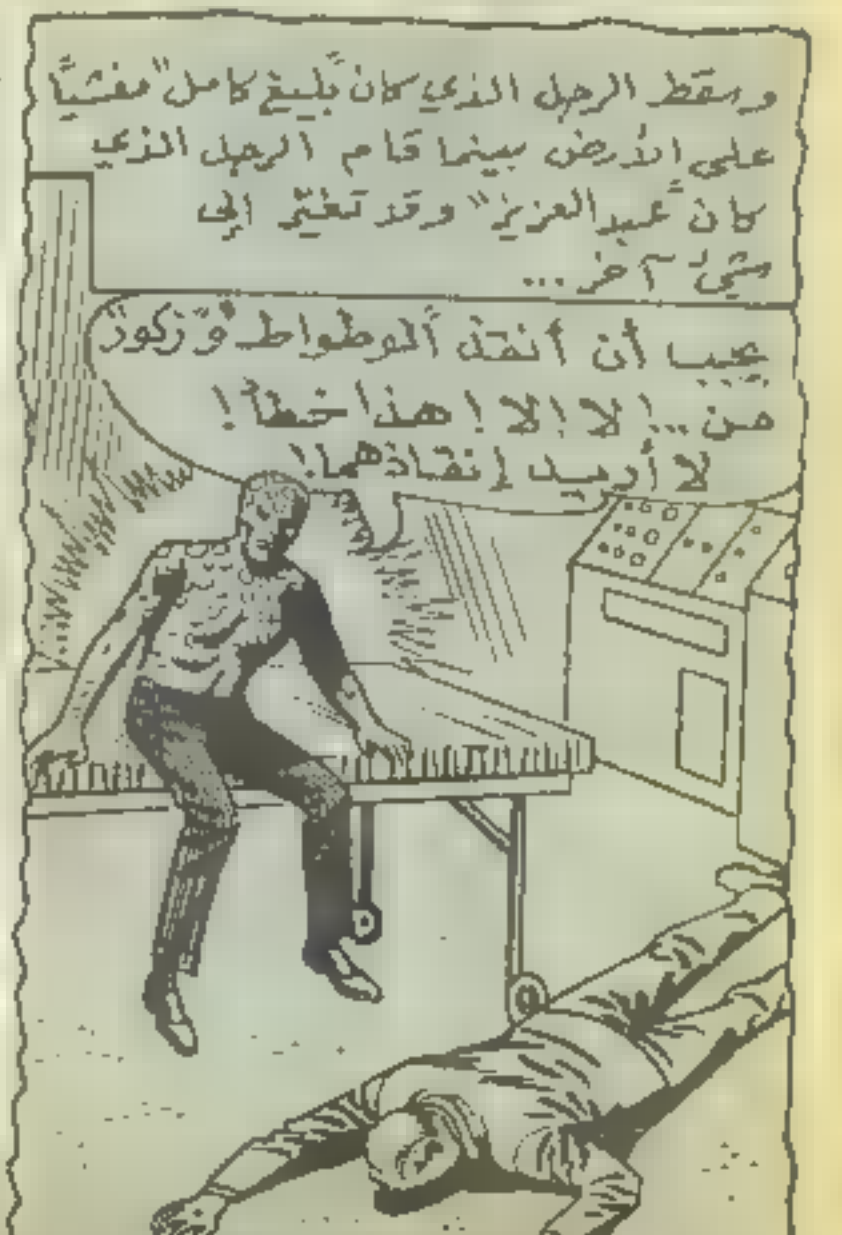 وسقط الرجل الذي كان "بليغ كامل" مغشيًا
على الأرض بينما قام الرجل الذي
كان "عبد العزيز" وقد تغيّر إلى
شيء آخر ...
يجب أن أنقذ "الوطواط" و"زكور"
من ...! لا! لا! هذا خطأ!
لا أريد إنقاذهما!